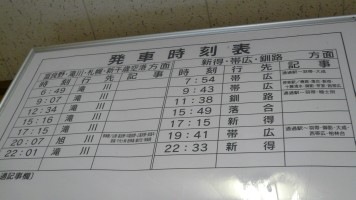 発車時刻表
富良野・滝川・札幌・新千歳空港 方面
時刻 行先 記事
6:49 滝川
9:07 滝川
12:34 滝川
15:16 滝川
17:15 滝川
20:07 旭川
22:01 滝川
新得・帯広・釧路 方面
時刻 行先 記事
7:54 帯広
9:43 帯広
11:38 釧路
15:49 落合
17:15 新得
19:41 帯広
22:33 新得